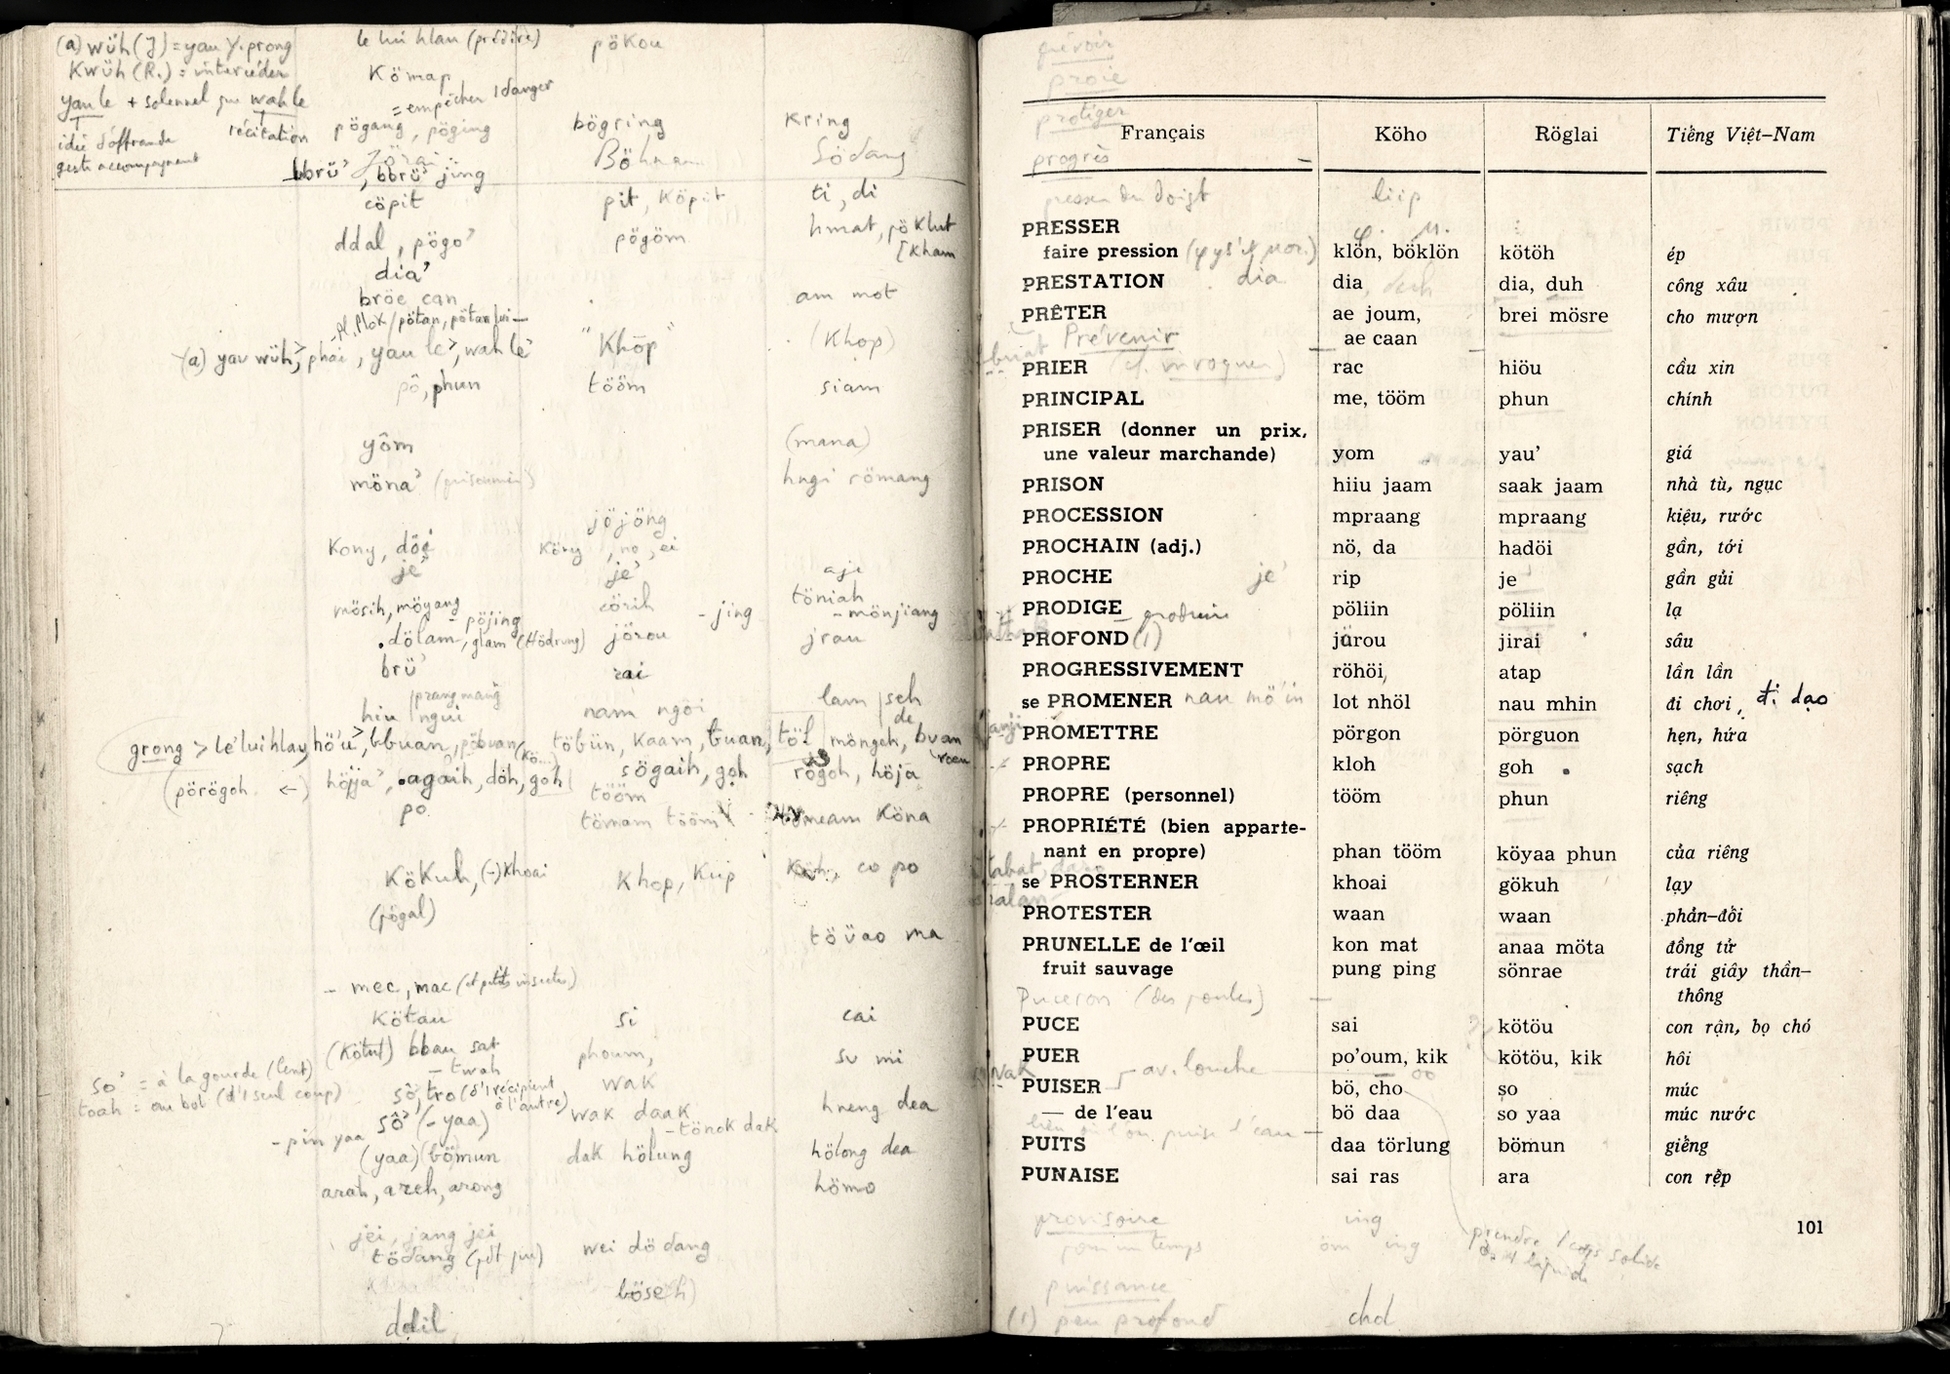 (a) wüh (J) = yau Y. prong
Kwüh (R.) = intercéder
yau le + solennel que wah le
idée d'offrande récitation
geste accompagnant
le lui hlau (prédire) pökou
Kömap
= empêcher 1 danger
pögang, pöging bögring kring
Jörai Böhnar Södang
bbrü', bbrü' jing
cöpit pit, köpit ti, di
ddal, pögo' pögöm hmat, pö klut
[kham
dia'
bröe can am mot
(a) yau wüh, phai, yau le, wah le "Khöp" (Khop)
pô, phun tööm siam
yôm (mana)
möna' hngi römang
jöjöng
Kony, döi
je' je' aje
mösih, möyang cörih - jing töniah
- pöjing - mönjiang
dölam, glam (Hödrung) jörou jrau
brü' rai
hiu ngui nam ngôi lam seh
grong > le lui hlay, hö'u, bbuan, pöbuan töbün, kaam, buan töl möngeh, buan
(pörögoh ←) höjja', agaih, döh, goh sögaih, goh rögoh, höja
tööm
po tömam tööm köna
Kökuh, (-) khoai khop, kup co po
(jögal)
töüao ma
- mec, mac (et petits insectes)
kötau si cai
(kötut) bbau sat phoum, su mi
- twah
so' = à la gourde (lent) sô, tro (d'1 récipient à l'autre) wak
toah = au bol (d'1 seul coup)
sô' (- yaa) wak daak hneng dea
- pin yaa - tönok dak
(yaa) bömun dak hölung hölong dea
arah, areh, arong hömo
jei, jang jei
tödang wei dö dang
böseh
ddil
prévoir
proie
protéger
progrès
Français Köho Röglai Tiếng Việt-Nam
presser du doigt liip
PRESSER
faire pression (φys' et mor.) klön, böklön kötöh ép
PRESTATION dia dia, duh dia, duh công xâu
PRÊTER ae joum, brei mösre cho mượn
Prévenir ae caan
PRIER (cf. invoquer) rac hiöu cầu xin
PRINCIPAL me, tööm phun chính
PRISER (donner un prix,
une valeur marchande) yom yau' giá
PRISON hiiu jaam saak jaam nhà tù, ngục
PROCESSION mpraang mpraang kiệu, rước
PROCHAIN (adj.) nö, da hadöi gần, tới
PROCHE je' rip je gần gũi
PRODIGE produire pöliin pöliin lạ
PROFOND (1) jürou jirai sâu
PROGRESSIVEMENT röhöi, atap lần lần
se PROMENER nau mö'in lot nhöl nau mhin đi chơi, đi dạo
PROMETTRE pörgon pörguon hẹn, hứa
PROPRE kloh goh sạch
PROPRE (personnel) tööm phun riêng
PROPRIÉTÉ (bien apparte-
nant en propre) phan tööm köyaa phun của riêng
se PROSTERNER khoai gökuh lạy
PROTESTER waan waan phản-đối
PRUNELLE de l'œil kon mat anaa möta đồng tử
fruit sauvage pung ping sönrae trái giây thần-
thông
Puceron (des poules)
PUCE sai kötöu con rận, bọ chó
PUER po'oum, kik kötöu, kik hôi
PUISER av. louche bö, cho so múc
— de l'eau bö daa so yaa múc nước
lieu où l'on puise l'eau
PUITS daa törlung bömun giếng
PUNAISE sai ras ara con rệp
101
provisoire ing
pour un temps öm ing
prendre 1 corps solide
ds 1 liquide
puissance
(1) peu profond chd